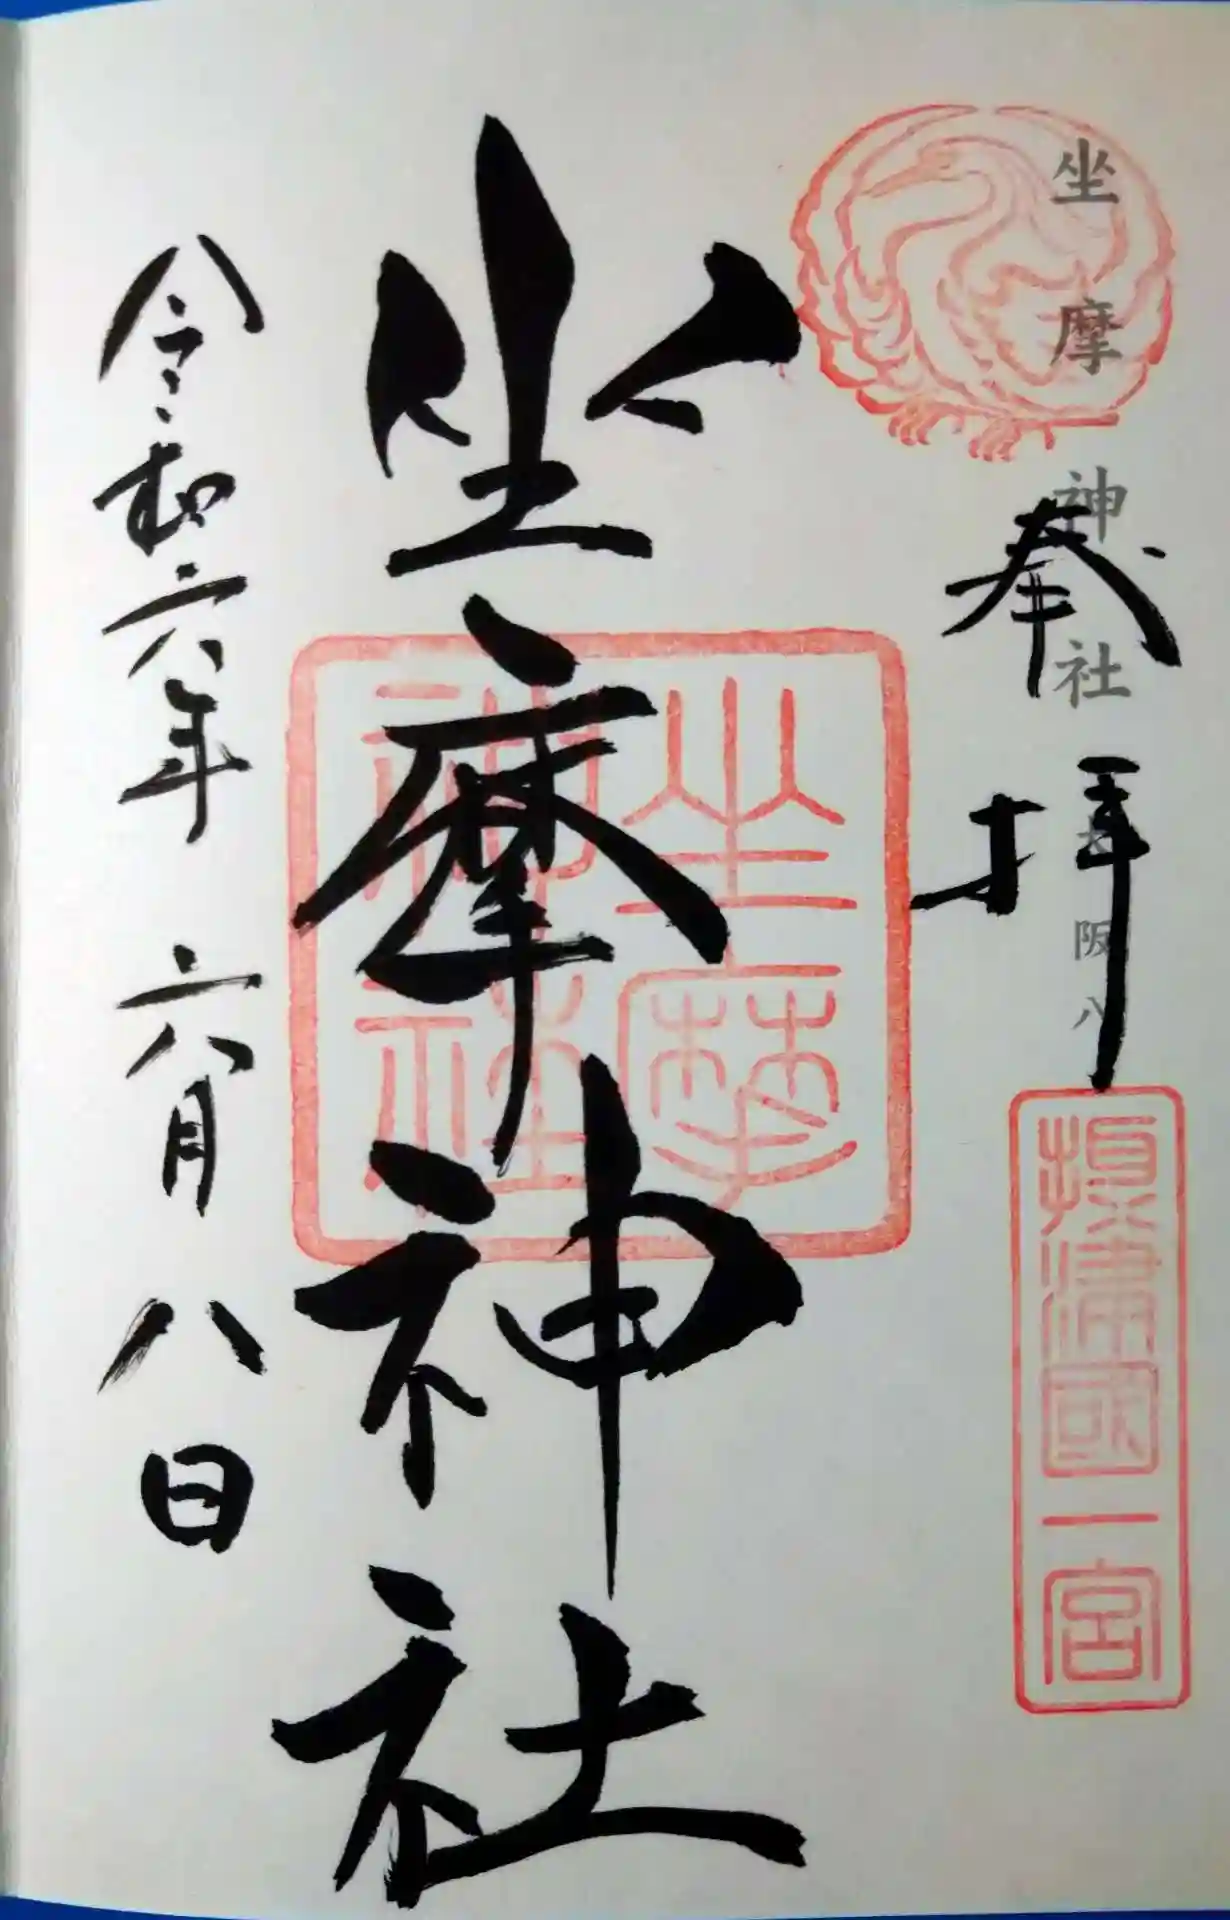 坐摩神社
大阪八
奉拝
摂津國一宮
坐摩神社
坐摩神社
令和六年 六月 八日